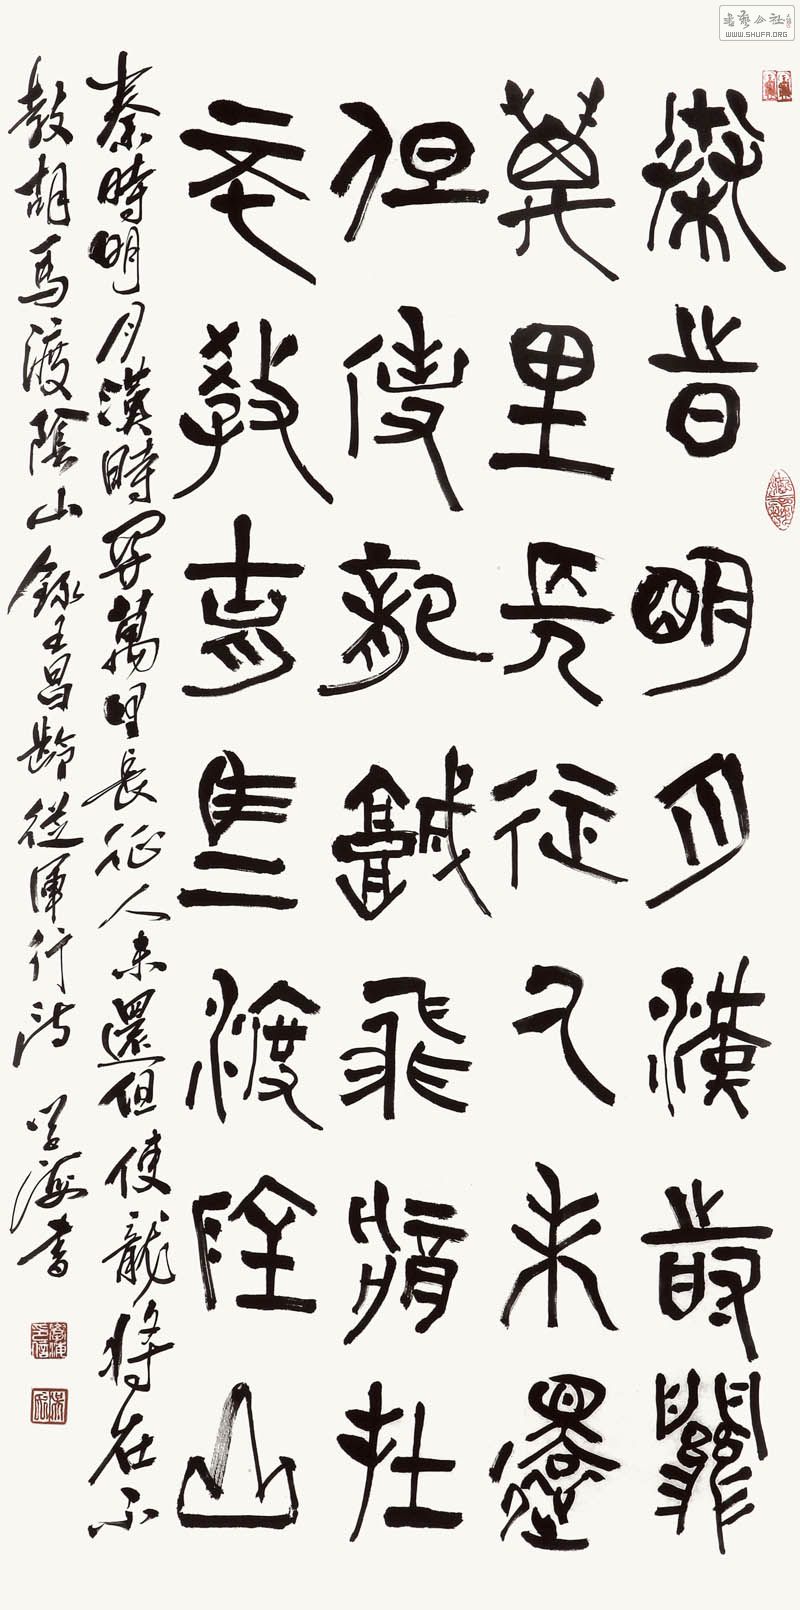 書藝公社
WWW.SHUFA.ORG
秦旹明月漢時關
萬里長征人未還
但使龍城飛將在
不教胡馬渡陰山
秦時明月漢時関萬里長征人未還但使龍将在不
教胡馬渡陰山錄王昌齡從軍行詩 学海書